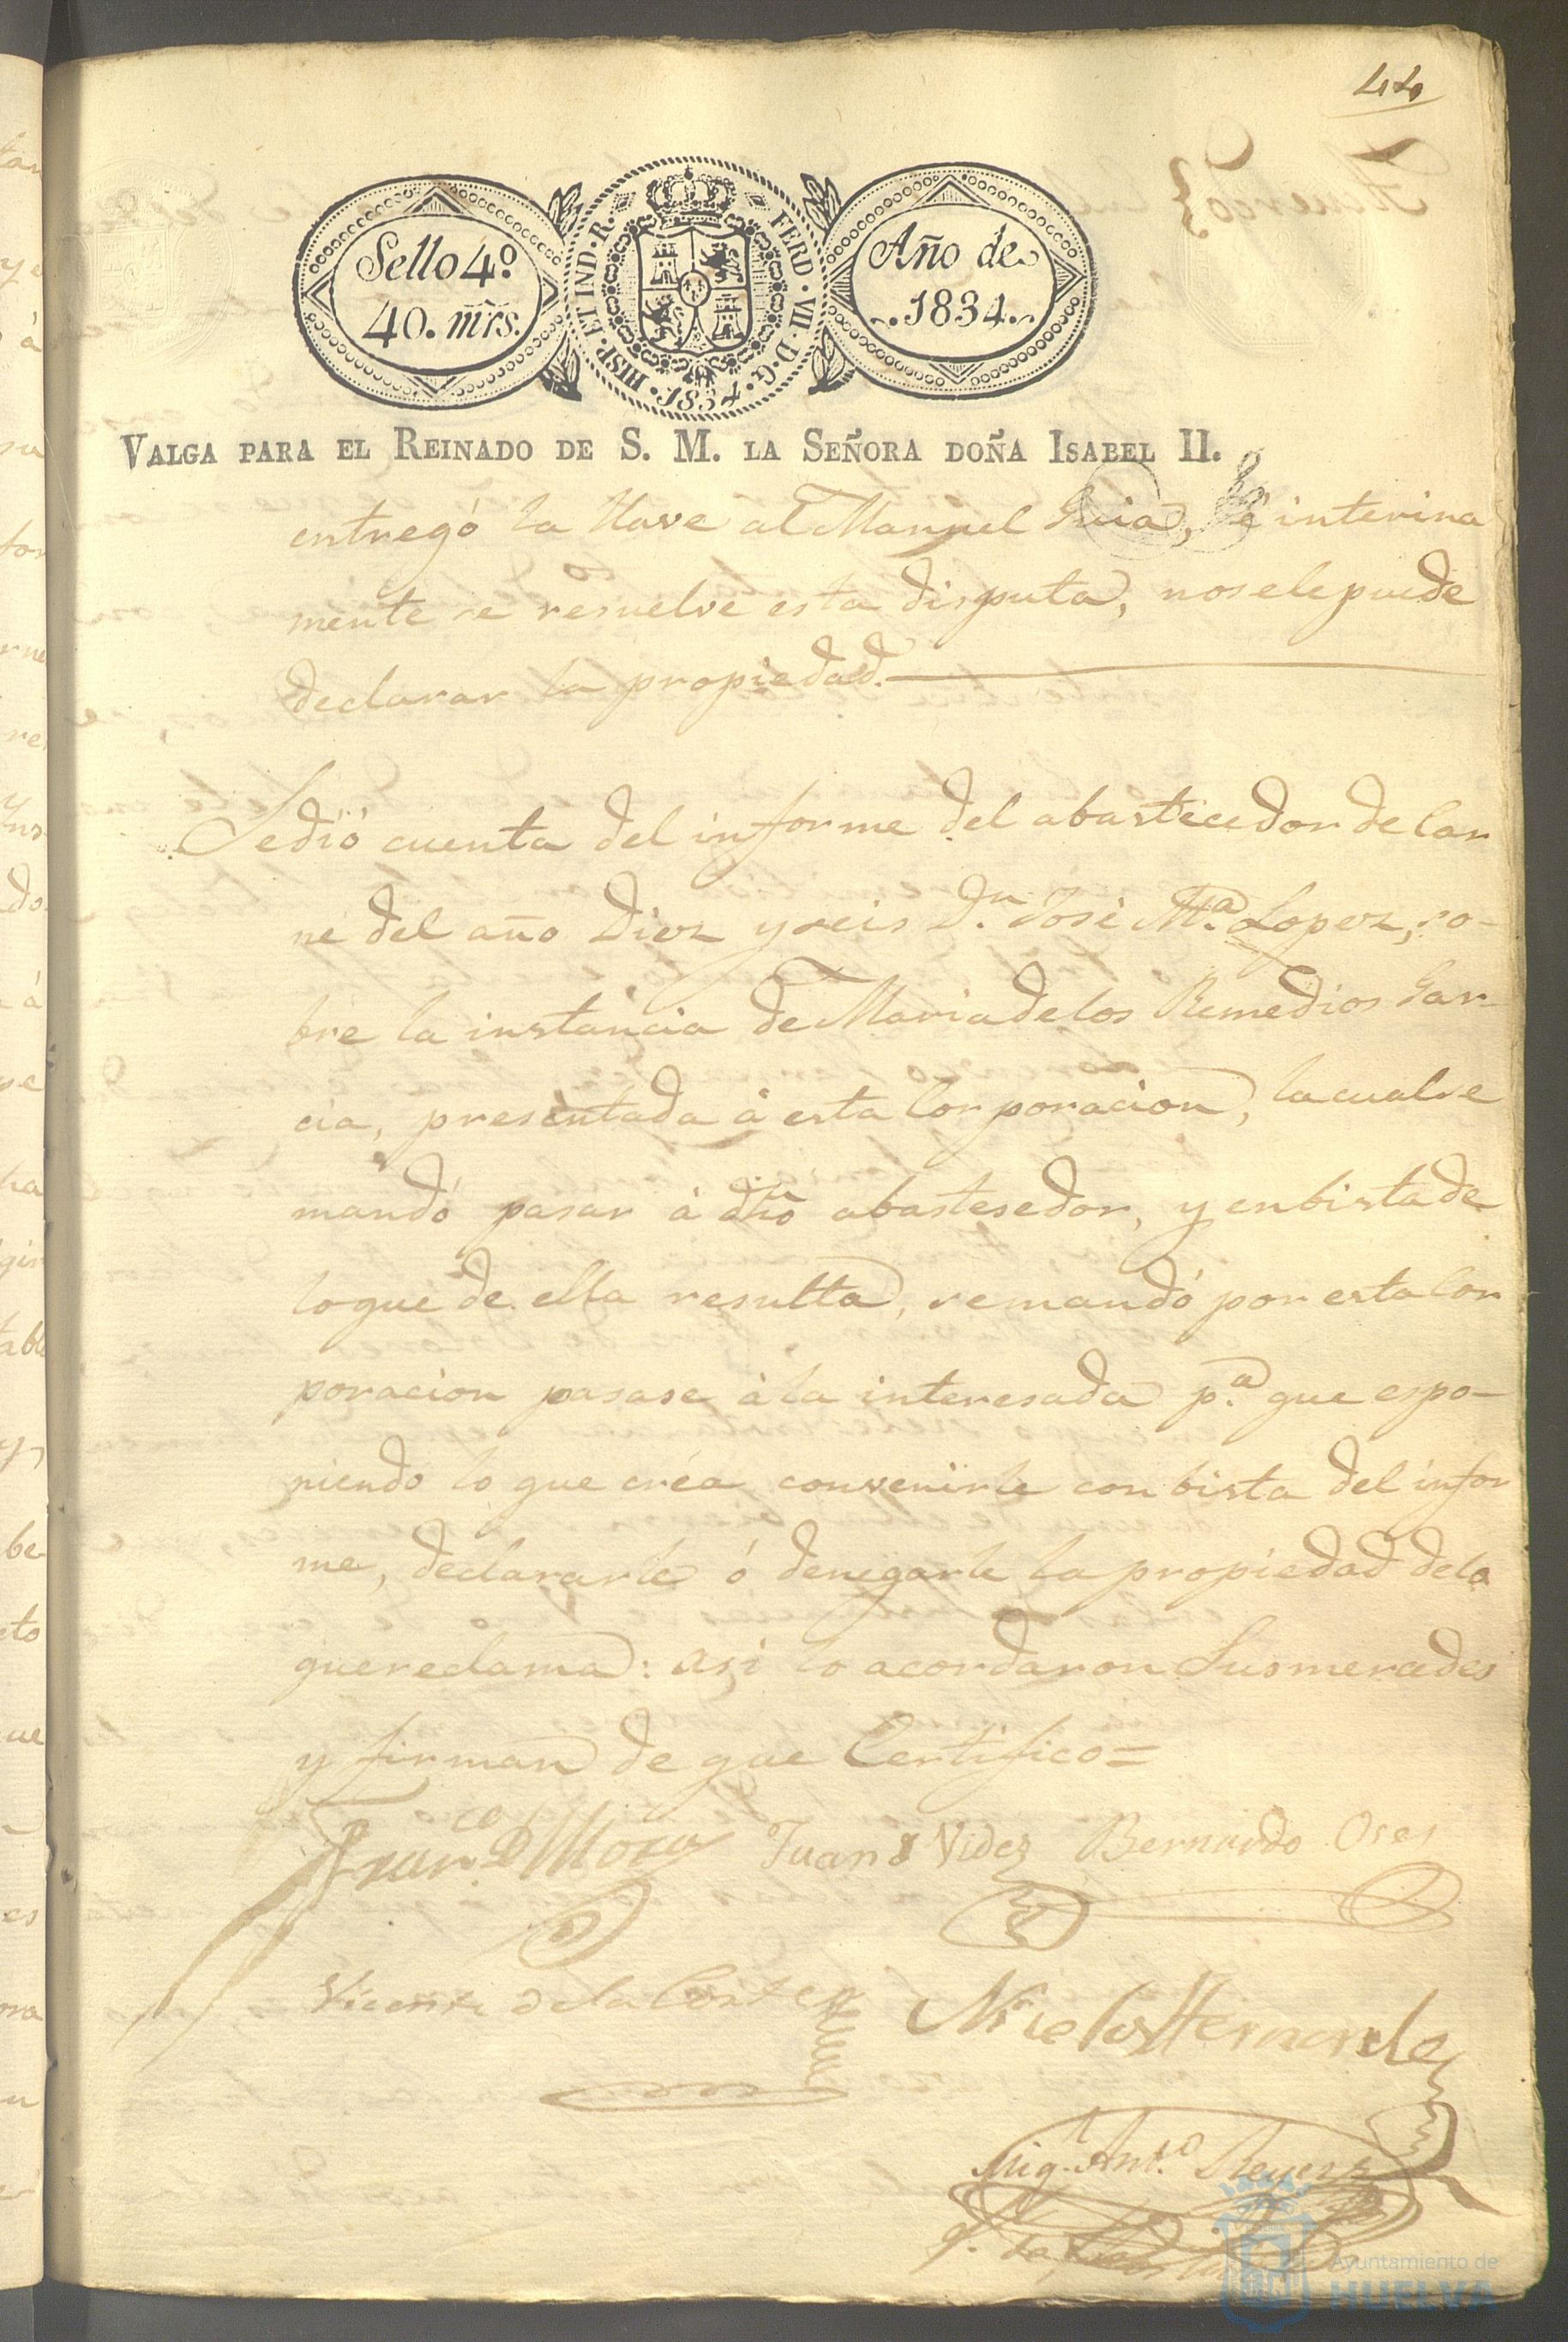 44
Sello 4º
40. mrs.
HISP. ET IND. R. FERD. VII. D. G. 1834.
Año de
1834.
VALGA PARA EL REINADO DE S. M. LA SEÑORA DOÑA ISABEL II.
entregó la llave al Manuel Guia, é interina
mente se resuelve esta disputa, noselepuede
declarar la propiedad.
Sedió cuenta del informe del abastecedor de Car
ne del año Diez y seis Dn. José Mª. Lopez, so-
bre la instancia de Maria delos Remedios Gar
cia, presentada á esta Corporacion, la cual se
mandó pasar á dho abastesedor, y enbistade
loque de ella resulta, semandó por esta Cor
poracion pasase á la interesada p.ª que espo-
niendo lo que créa convenirle con bista del infor
me, declararle ó denegarle la propiedad dela
quereclama: asi lo acordaron Susmercedes
y firman de que Certifico=
Franco. D Mora Juan Videz Bernardo Oses
Vicente de la Corte
Nicolas Hernandez
Migl. Anto. Reyes
Ayuntamiento de
HUELVA